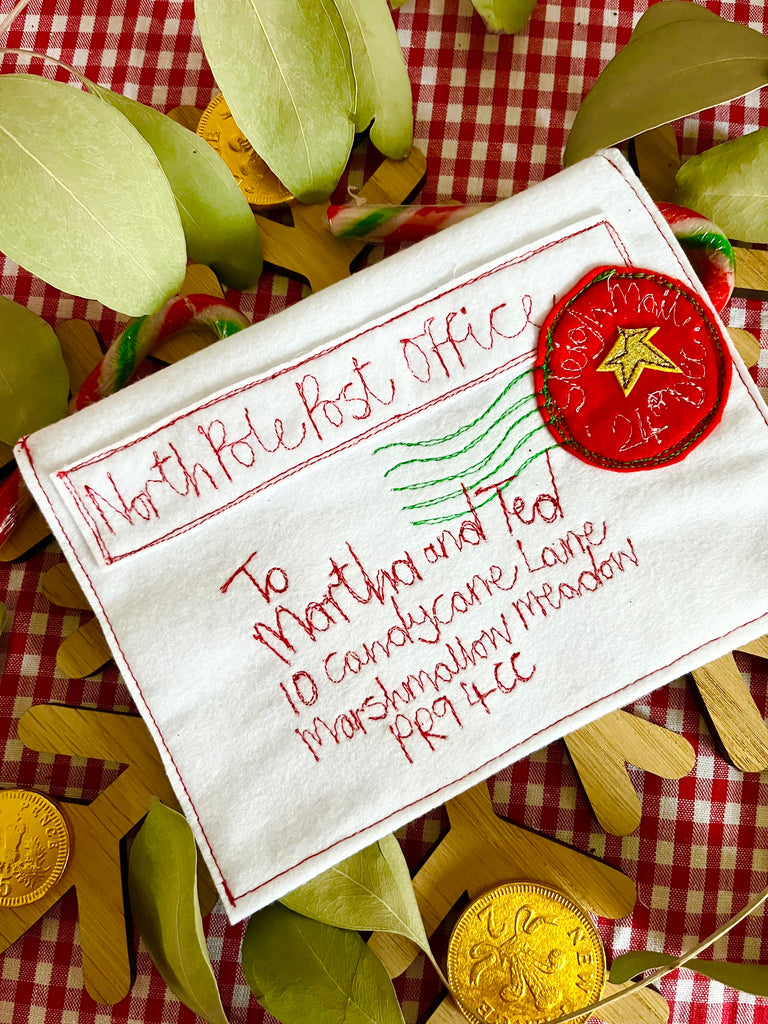 North Pole Post Office
Sleigh Mail
24th Dec
To
Martha and Ted
10 Candycane Lane
Marshmallow Meadow
PR9 4CC
NEW